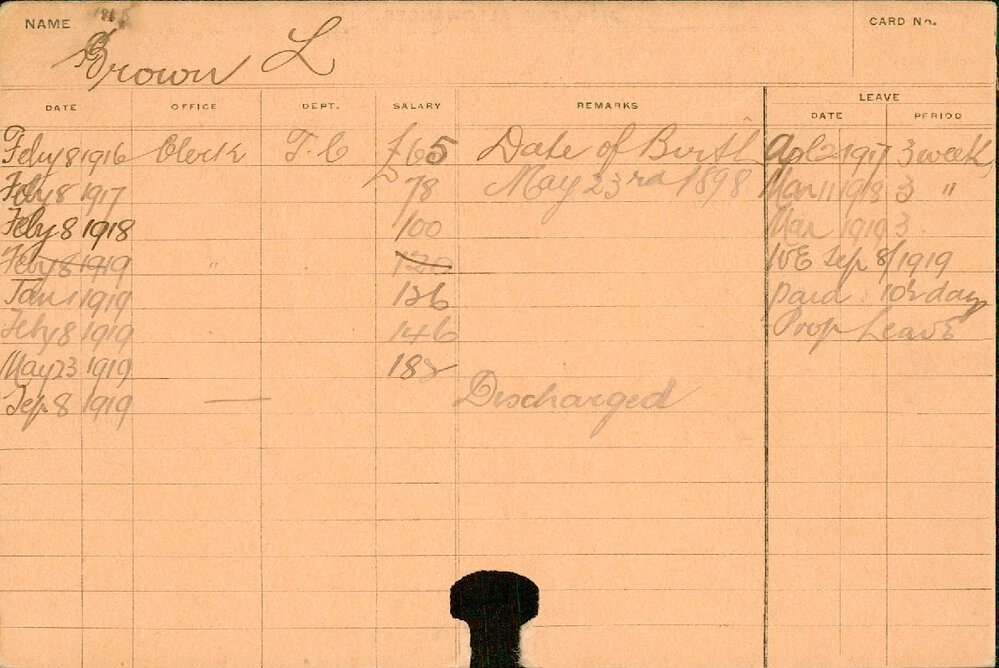 NAME
CARD No.
Brown L
LEAVE
DATE OFFICE DEPT. SALARY REMARKS DATE PERIOD
Feby 8 1916 Clerk T.C £65 Date of Birth Apl 2 1917 3 week
Feby 8 1917 78 May 23rd 1898 Mar 11 1918 3 "
Feby 8 1918 100 Mar 1919 3
Feby 8 1919 " 120 WE Sep 8/1919
Jan 1 1919 126 paid 10½ days
Feby 8 1919 146 Prop Leave
May 23 1919 182
Sep 8 1919 — Discharged